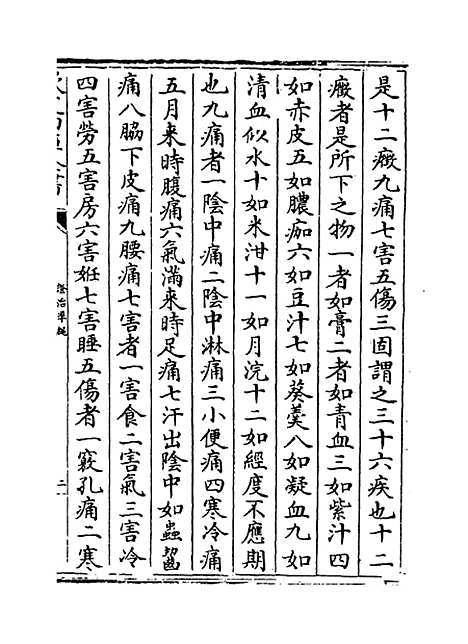 是十二癥九痛七害五傷三固謂之三十六疾也十二
癥者是所下之物一者如膏二者如青血三如紫汁四
如赤皮五如膿痂六如豆汁七如葵羹八如凝血九如
清血似水十如米泔十一如月浣十二如經度不應期
也九痛者一陰中痛二陰中淋痛三小便痛四寒冷痛
五月来時腹痛六氣滿来時足痛七汗出陰中如蟲齧
痛八脇下皮痛九腰痛七害者一害食二害氣三害冷
四害勞五害房六害姙七害睡五傷者一竅孔痛二寒
證治準繩
二